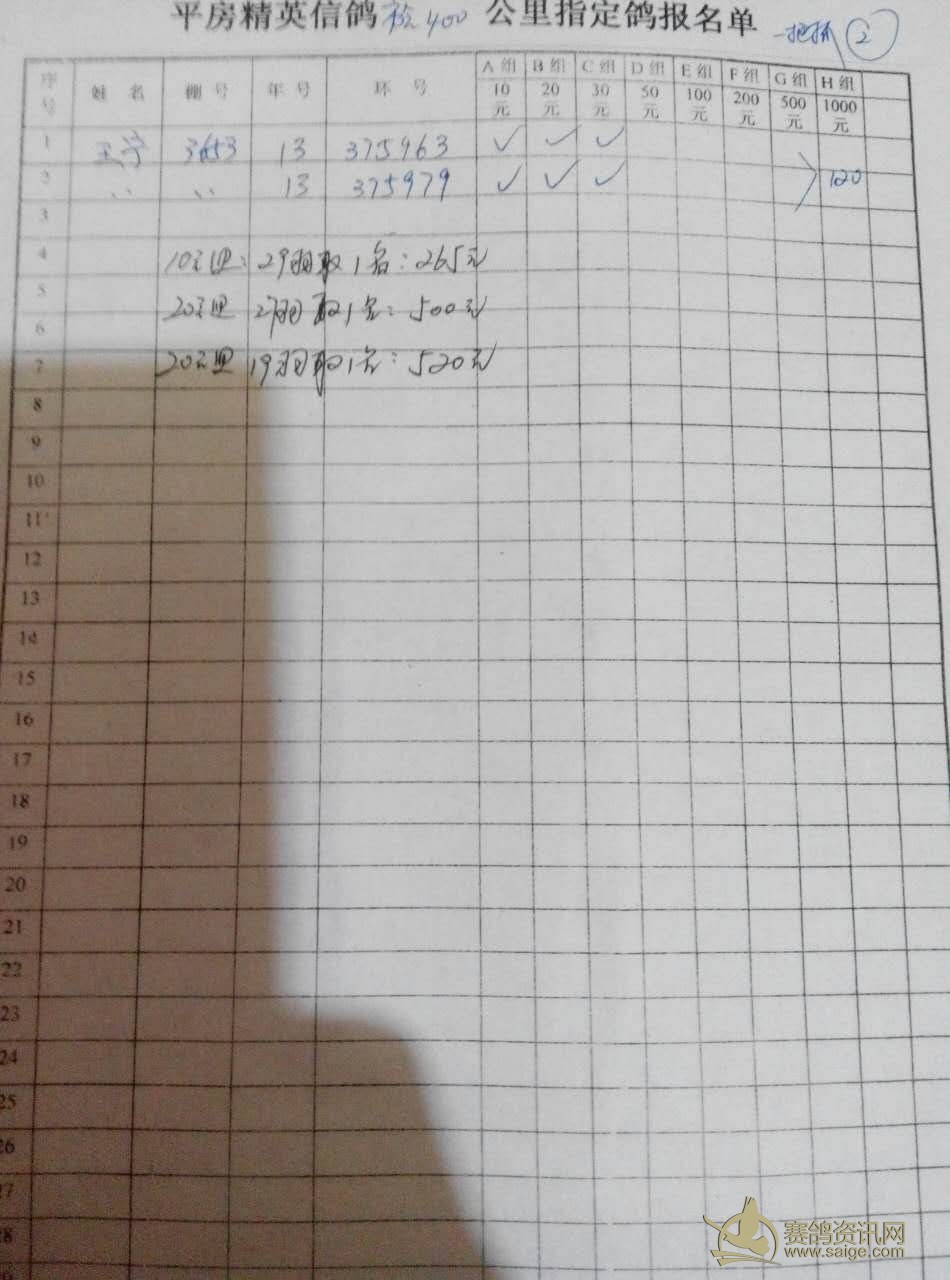 平房精英信鸽 秋400 公里指定鸽报名单 一把抓 ②
序号 姓名 棚号 年号 环号 A组 B组 C组 D组 E组 F组 G组 H组
10元 20元 30元 50元 100元 200元 500元 1000元
1 王宁 3653 13 375963 ✓ ✓ ✓
2 〃 〃 13 375979 ✓ ✓ ✓ 120
3
4 10元里: 29羽取1名: 265元
5
20元里 27羽取1名: 500元
6
7 20元里 19羽取1名: 520元
8
9
10
11
12
13
14
15
16
17
18
19
20
21
22
23
24
25
26
27
28
赛鸽资讯网
www.saige.com